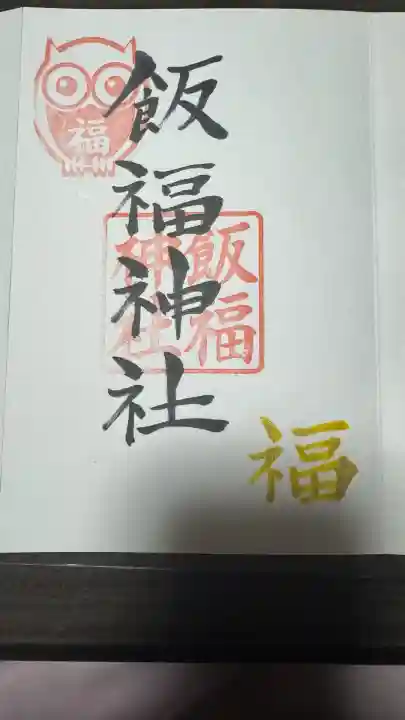 福
飯福神社
飯福
神社
福